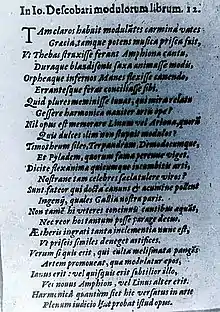 In Io. Descobari modulorum librum. 12.
TAm claros habuit modulãtes carmina vates
Græcia, tamque potens musica prisca fuit,
Vt Thebas struxisse ferant Amphiona cantu,
Duraque blandisonis saxa animasse modis,
Orpheaque infernos Manes flexisse canendo,
Errantesque feras conciliasse sibi.
Quid plures meminisse iuuat, qui mira relatu
Gessere harmonica nauiter arte ope?
Nil opus est memorare Linum vel Ariona, quorũ
Quis dulces
Timotheum sileo, Terpandrum, Demodocumque,
Et Pyladem, quorum fama perennè viget.
Dicite flexanima quisquam iucundior arte
Nostrane tam celebres sæcla tulere viros?
Sunt fateor qui docta canant & acumine pollent
Ingenij, quales Gallia nostra parit.
Non tamẽ hi veteres concinnis cantibus æquãt,
Nec reor hoc tantum posse parare decus.
Ætheris ingrati tanta inclementia nunc est,
Vt priscis similes deneget artifices.
Verum si quis erit, qui culta melismata pangẽs
Artem promoueat, qua moderatur opus,
Ianus erit: vel quisquis erit subtilior illo,
Vel nouus Amphion, vel Linus alter erit.
Harmonicâ quantum siet hic versatus in arte
Plenum iudicio hoc probat istud opus.